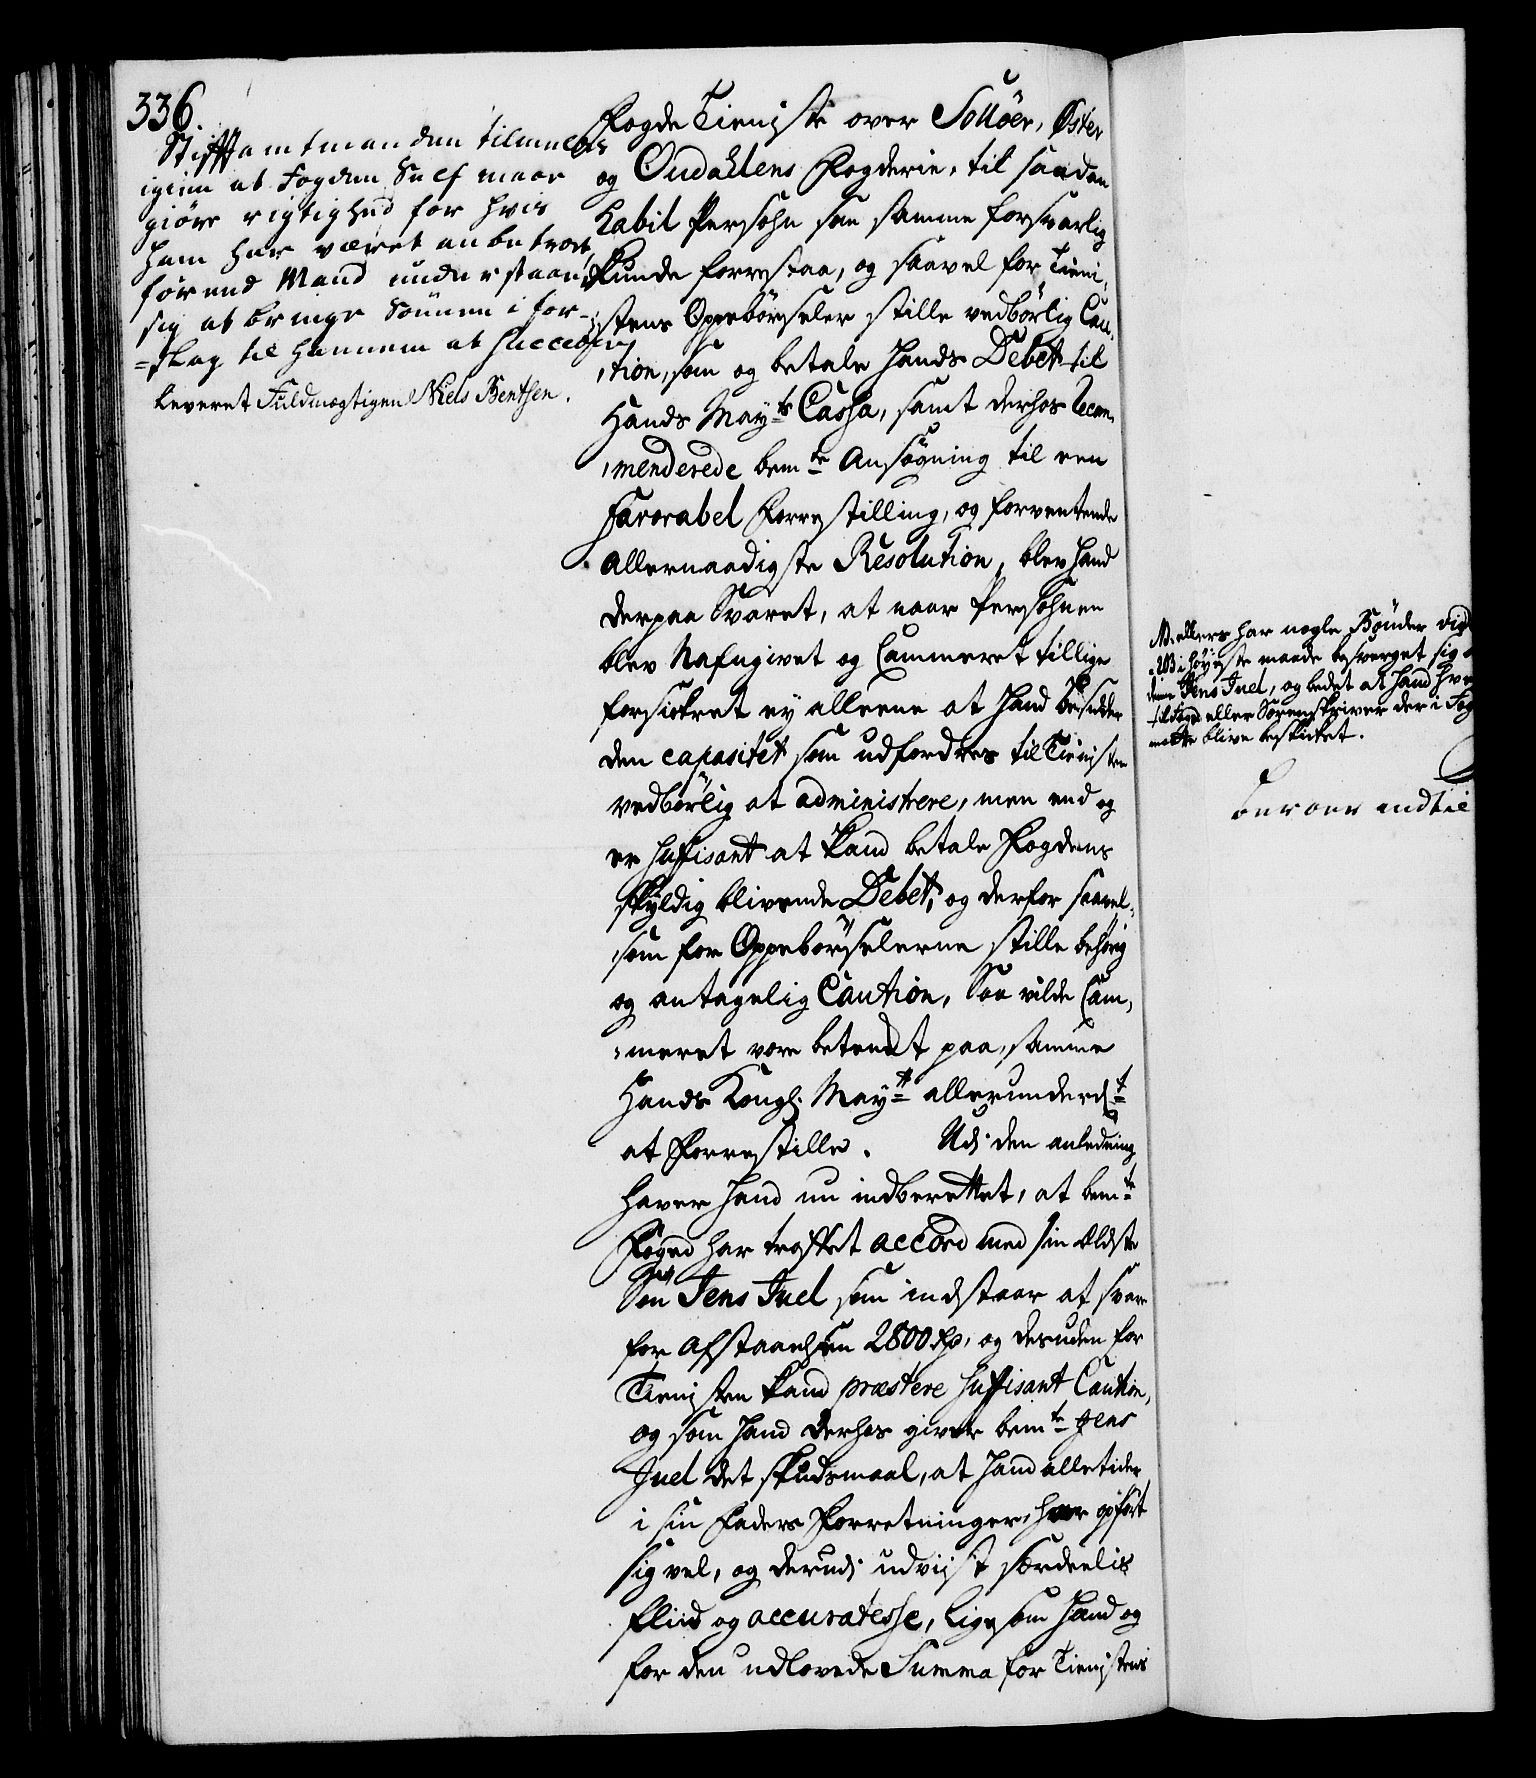 336.
Stifftamtmanden tilmeldes
igien at Fogden Self maae
giøre rigtighed for hvis
ham har været anbetroet,
før end Mand understaar
sig at bringe Sønnen i for-
=slag til hannem at succedere
Leveret Fuldmægtigen Niels Bentsen.
Fogde Tieniste over Solløer, Øster
og Oudahlens Fogderie, til saadan
habil Persohn som samme forsvarlig
kunde forrestaa, og saavel for Tieni,
,stens Oppebørseler stille vedbørlig Cau,
,tion, som og betale hands Debet til
Hands Mayts Cassa, samt derhos Recom,
,menderede bemte Ansøgning til een
Favorabel Forrestilling, og forventende
allernaadigste Resolution, blev hand
derpaa Svaret, at naar Persohnen
blev Nafngivet og Cammeret tillige
forsickret ey alleene at hand besidder
den capasitet som udfordres til Tienisten
vedbørlig at administrere, men end og
er suffisant at kand betale Fogdens
skyldig blivende Debet, og derfor saavel,
,som for Oppebørselerne stille behørig
og antagelig Caution, Saa vilde Cam,
,meret være betenckt paa, samme
Hands Kongl. Mayt allerunderdt
at Forrestille. Udi den anledning
haver hand nu indberettet, at bemte
Foged har troffet accord med sin ældste
Søn Jens Juel som indstaar at svare
for Afstaaelsen 2800 Rd, og desuden for
Tienisten kand præstere suffisant Caution,
og som hand derhos giver bemte Jens
Juel det skudsmaal, at hand alletider
i sin Faders Forretninger, har opført
sig vel, og derudi udviist særdeelis
fliid og accuratesse, ligesom hand og
for den udlovede Summa for Tienistens
NB. ellers har nogle Bønder
i høyeste maade besværget sig
Jens Juel, og bedet at hand
til foged eller Sorenskriver der i Fog
maatte blive beskicket.
indtil